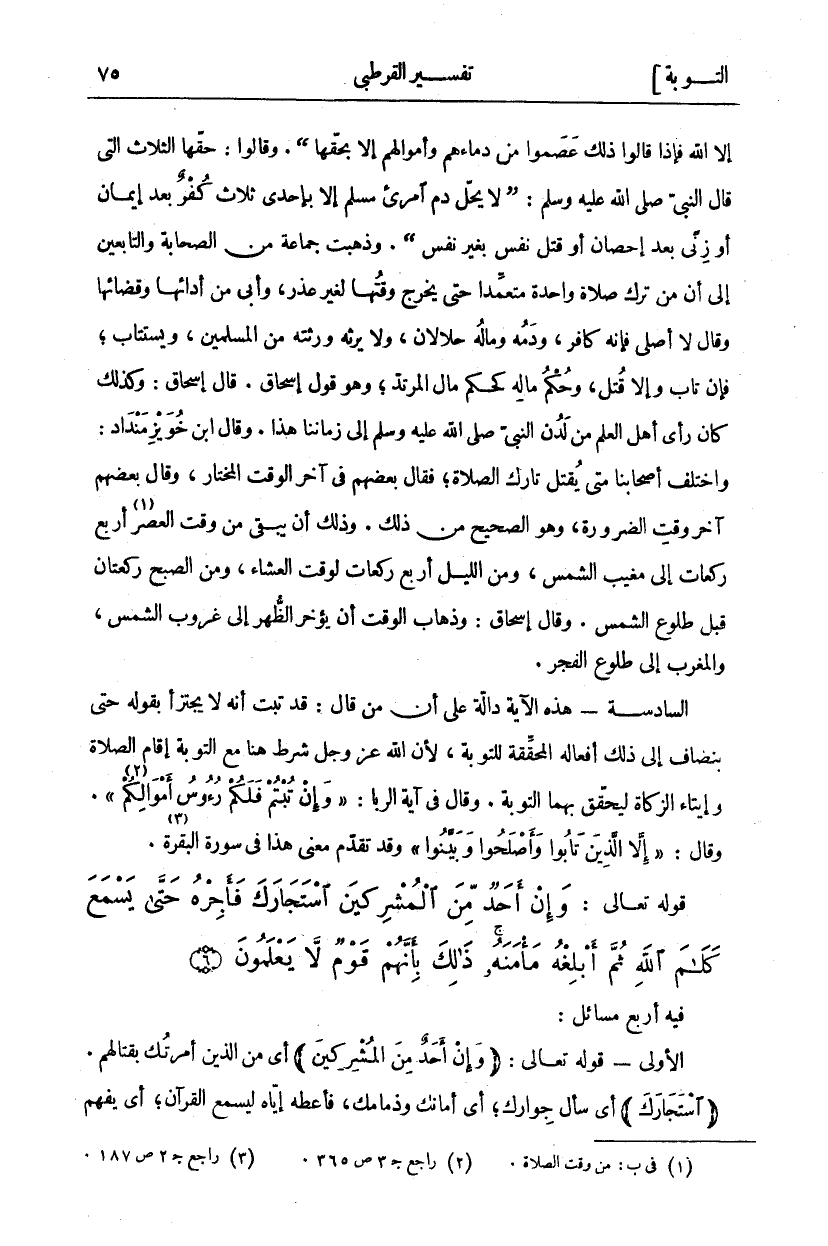 التـــوبة] تفســـير القرطبى ٧٥
إلا الله فإذا قالوا ذلك عَصَموا من دماءهم وأموالهم إلا بحقّها ” . وقالوا : حقّها الثلاث التى
قال النبىّ صلى الله عليه وسلم : ” لا يحلّ دم ٱمرئ مسلم إلا بإحدى ثلاث كُفْرٌ بعد إيمـان
أو زِنًى بعد إحصان أو قتل نفس بغير نفس “ . وذهبت جماعة من الصحابة والتابعين
إلى أن من ترك صلاة واحدة متعمِّدا حتى يخرج وقتُهـا لغير عذر، وأبى من أدائهـا وقضائها
وقال لا أصلى فإنه كافر ، ودَمُه ومالُه حلالان ، ولا يرثه ورثته من المسلمين ، ويستتاب ؛
فإن تاب وإلا قُتل، وحُكْمُ ماله كحكم مال المرتدّ ؛ وهو قول إسحاق . قال إسحاق : وكذلك
كان رأى أهل العلم من لَدُن النبىّ صلى الله عليه وسلم إلى زماننا هذا . وقال ابن خُوَيْزِمَنْدَاد :
واختلف أصحابنا متى يُقتل تارك الصلاة؛ فقال بعضهم فى آخر الوقت المختار ، وقال بعضهم
آخر وقتِ الضرورة، وهو الصحيح من ذلك . وذلك أن يبقى من وقت العصر(١) أربع
ركعات إلى مغيب الشمس ، ومن الليـل أربع ركعات لوقت العشاء ، ومن الصبح ركعتان
قبل طلوع الشمس . وقال إسحاق : وذهاب الوقت أن يؤخر الظُّهر إلى غروب الشمس ،
والمغرب إلى طلوع الفجر .
السادســة — هذه الآية دالّة على أن من قال : قد تبت أنه لا يجتزأ بقوله حتى
ينضاف إلى ذلك أفعاله المحقِّقة للتوبة ، لأن الله عز وجل شرط هنا مع التوبة إقام الصلاة
وإيتاء الزكاة ليحقّق بهما التوبة . وقال فى آية الربا : « وَإِنْ تُبْتُمْ فَلَكُمْ رُءُوسُ أَمْوَالِكُمْ(٢) » .
وقال : « إِلَّا الَّذِينَ تَابُوا وَأَصْلَحُوا وَبَيَّنُوا(٣) » وقد تقدّم معنى هذا فى سورة البقرة .
قوله تعـالى : وَإِنْ أَحَدٌ مِّنَ ٱلْمُشْرِكِينَ ٱسْتَجَارَكَ فَأَجِرْهُ حَتَّىٰ يَسْمَعَ
كَلَـٰمَ ٱللَّهِ ثُمَّ أَبْلِغْهُ مَأْمَنَهُۥۚ ذَٰلِكَ بِأَنَّهُمْ قَوْمٌ لَّا يَعْلَمُونَ ۝٦
فيه أربع مسائل :
الأولى — قوله تعـالى : ﴿ وَإِنْ أَحَدٌ مِنَ الْمُشْرِكِينَ ﴾ أى من الذين أمرتُك بقتالهم .
﴿ ٱسْتَجَارَكَ ﴾ أى سأل جِوارك؛ أى أمانك وذمامك، فأعطه إيّاه ليسمع القرآن؛ أى يفهم
(١) فى ب : من وقت الصلاة . (٢) راجع جـ ٣ ص ٣٦٥ . (٣) راجع جـ ٢ ص ١٨٧ .